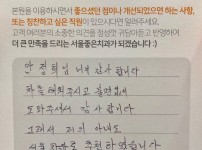 본원을 이용하시면서 좋으셨던 점이나 개선되었으면 하는 사항,
또는 칭찬하고 싶은 직원이 있으시다면 알려주세요.
고객 여러분의 소중한 의견을 경청할 귀담아듣고 반영하여
더 큰 만족을 드리는 서울좋은치과가 되겠습니다 :)
안 정희님 너무 감사합니다
항상 해맑게
도와주셔서 감사합니다
그래서 저의 아내도
서울 추천 하였습니다